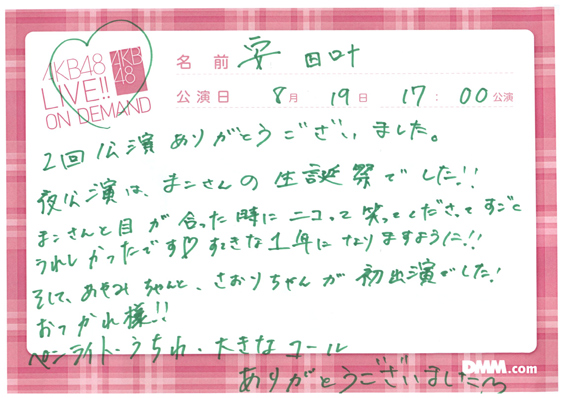 AKB48
LIVE!!
ON DEMAND
AKB
48
名前 安田叶
公演日 8月 19日 17:00公演
2回公演ありがとうございました。
夜公演は、まこさんの生誕祭でした!!
まこさんと目が合った時にニコって笑ってくださってすごく
うれしかったです♡ すてきな1年になりますように!!
そして、あやみちゃんと、さおりちゃんが初出演でした!
おつかれ様!!
ペンライト・うちわ・大きなコール
ありがとうございました
DMM.com